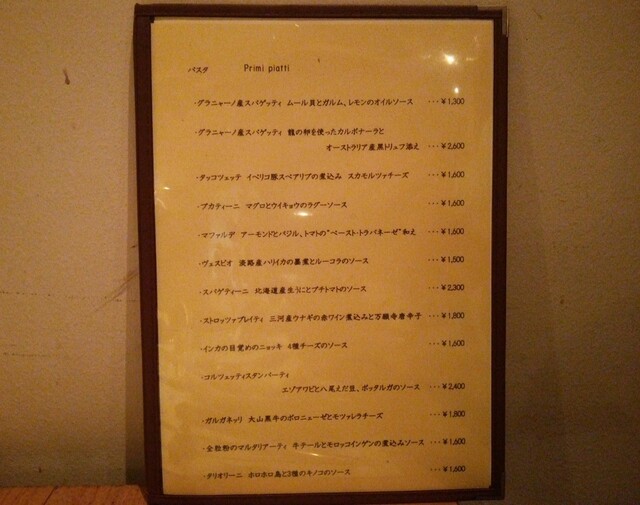 パスタ Primi piatti
・グラニャーノ産スパゲッティ ムール貝とガルム、レモンのオイルソース ・・・¥1,300
・グラニャーノ産スパゲッティ 龍の卵を使ったカルボナーラと
オーストラリア産黒トリュフ添え ・・・¥2,600
・タッコツェッテ イベリコ豚スペアリブの煮込み スカモルツァチーズ ・・・¥1,600
・ブカティーニ マグロとウイキョウのラグーソース ・・・¥1,600
・マファルデ アーモンドとバジル、トマトの"ペースト・トラパネーゼ"和え ・・・¥1,600
・ヴェスビオ 淡路産ハリイカの墨煮とルーコラのソース ・・・¥1,500
・スパゲティーニ 北海道産生うにとプチトマトのソース ・・・¥2,300
・ストロッツァプレイティ 三河産ウナギの赤ワイン煮込みと万願寺唐辛子 ・・・¥1,800
・インカの目覚めのニョッキ 4種チーズのソース ・・・¥1,600
・コルツェッティスタンパーティ
エゾアワビと八尾えだ豆、ボッタルガのソース ・・・¥2,400
・ガルガネッリ 大山黒牛のボロニェーゼとモツァレラチーズ ・・・¥1,800
・全粒粉のマルタリアーティ 牛テールとモロッコインゲンの煮込みソース ・・・¥1,600
・タリオリーニ ホロホロ鳥と3種のキノコのソース ・・・¥1,600